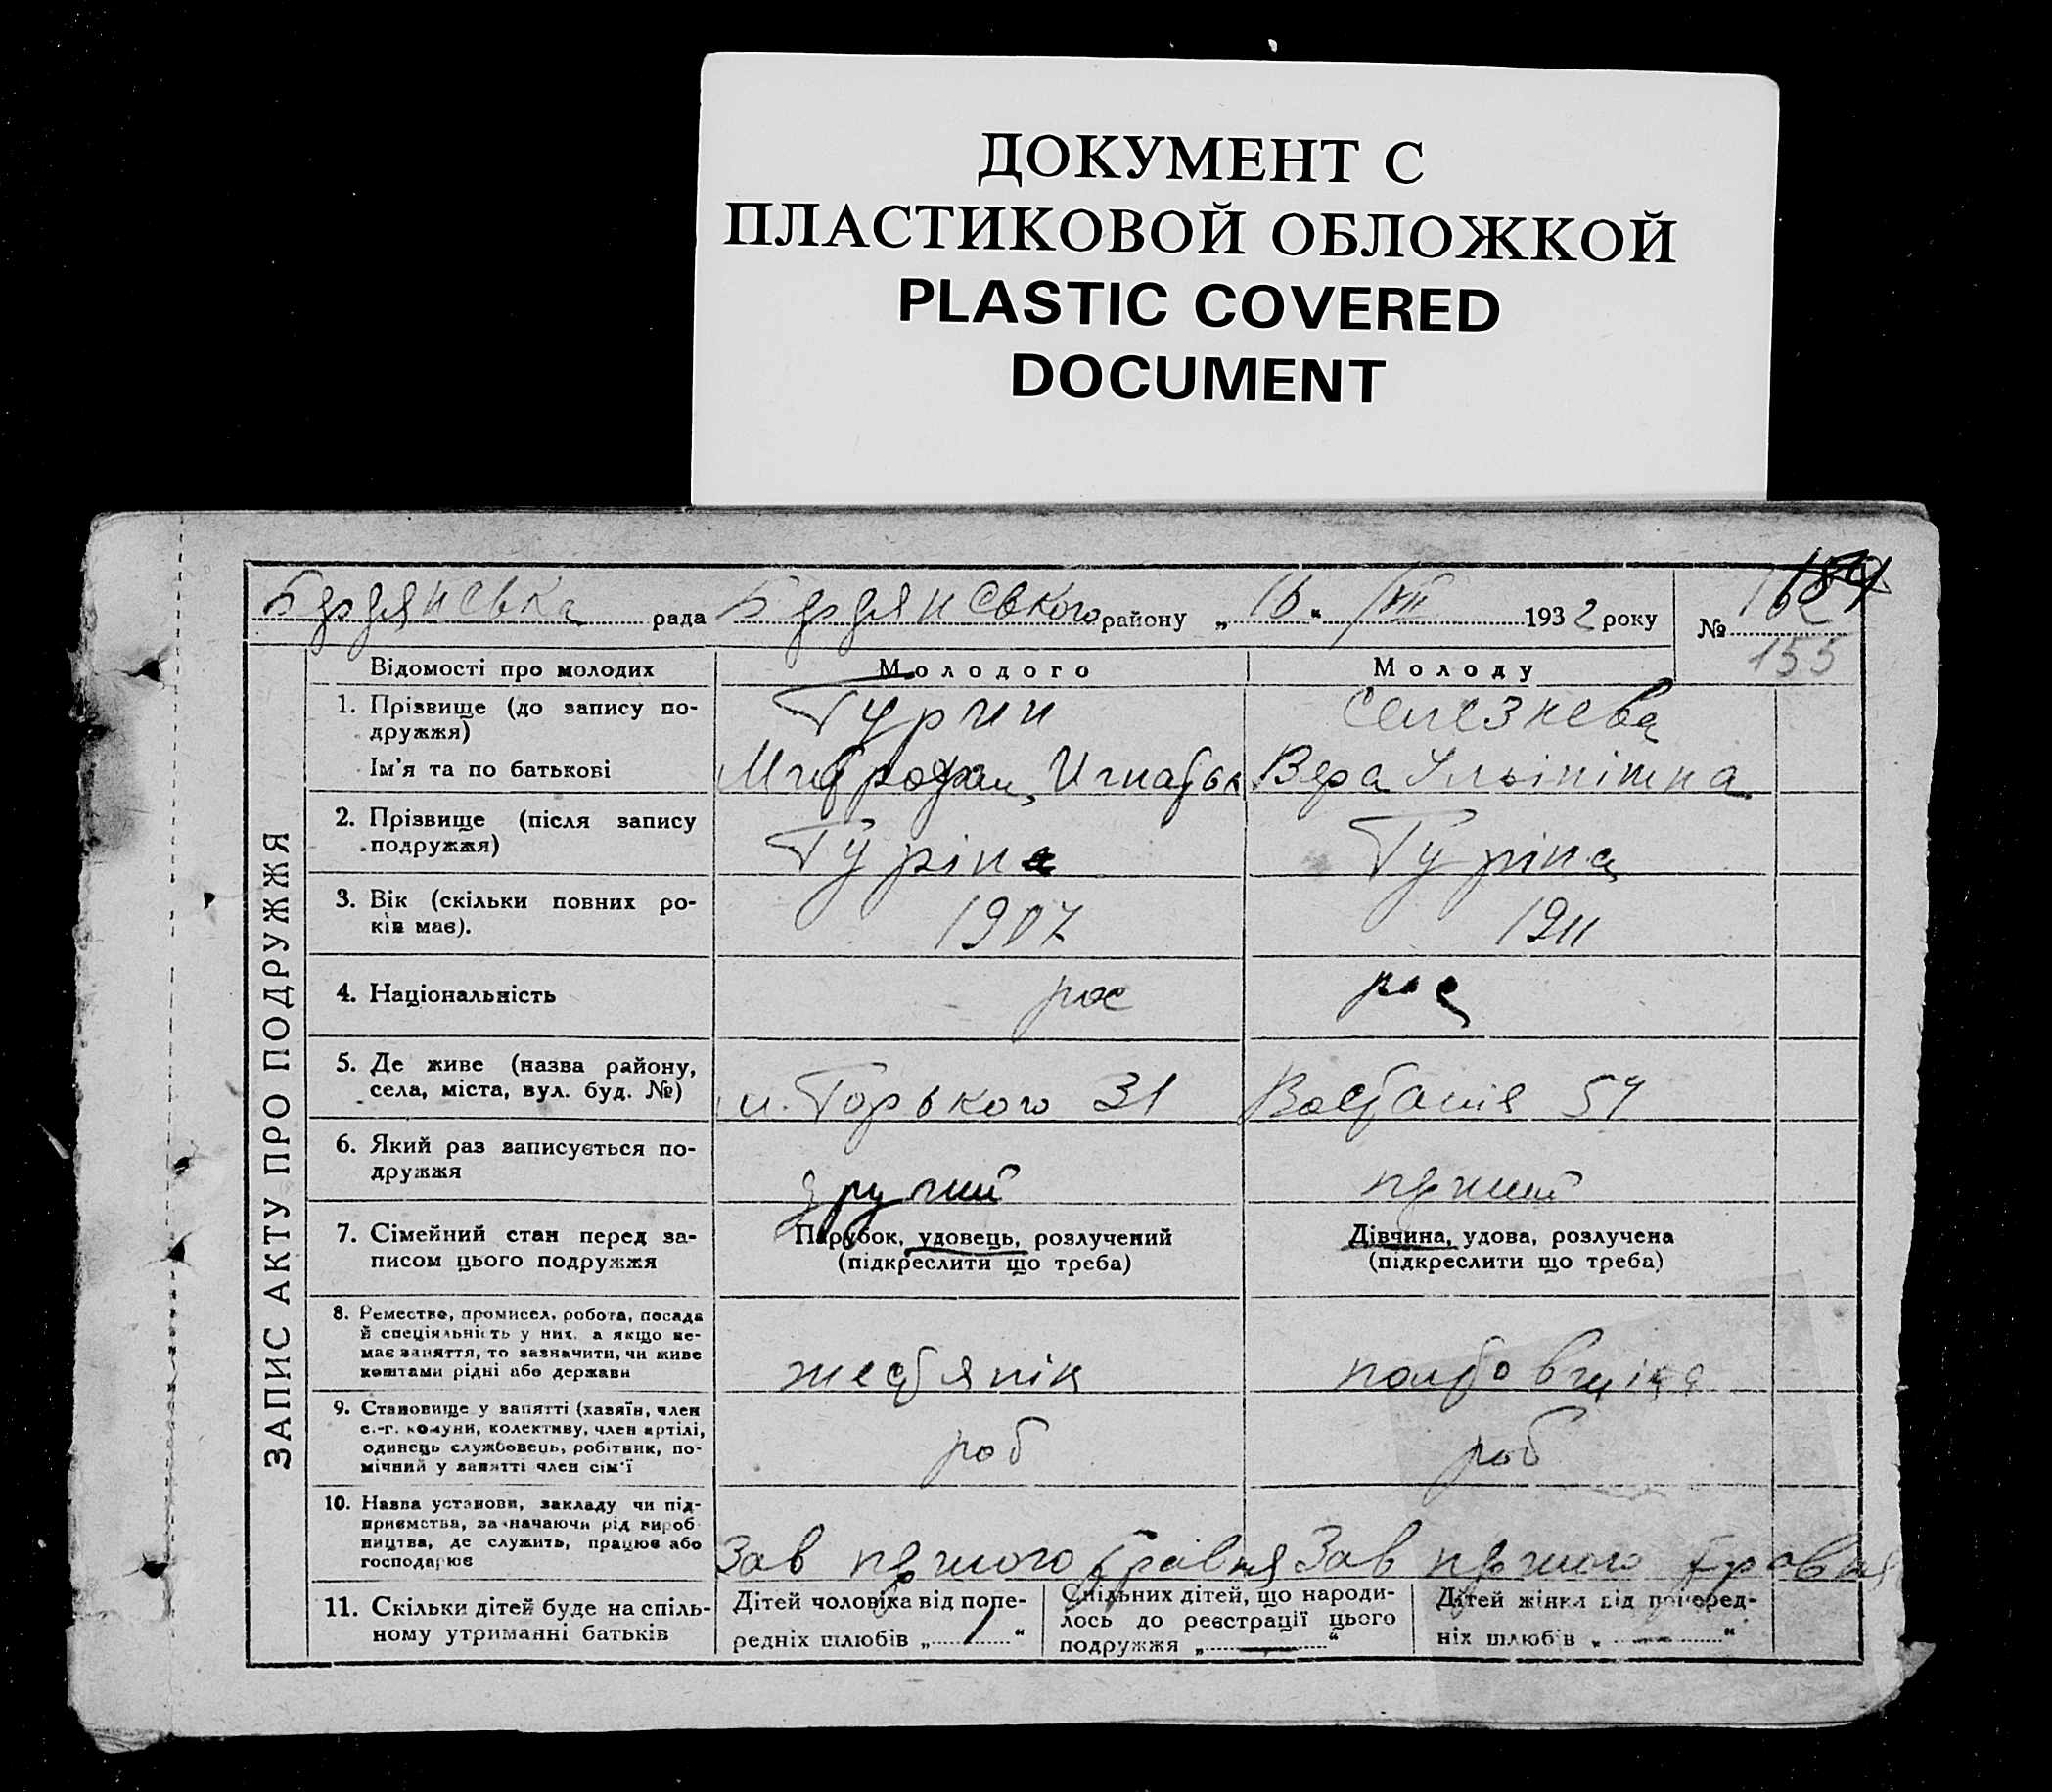 ДОКУМЕНТ С
ПЛАСТИКОВОЙ ОБЛОЖКОЙ
PLASTIC COVERED
DOCUMENT
Бердянська рада Бердянського району „16“ VIII 1932 року №
155
ЗАПИС АКТУ ПРО ПОДРУЖЖЯ
Відомості про молодих Молодого Молоду
1. Прізвище (до запису по-
дружжя) Гурин Селезнева
Ім'я та по батькові Митрофан Игнатьев Вера Ільінішна
2. Прізвище (після запису
подружжя) Гуріна Гуріна
3. Вік (скільки повних ро-
ків має). 1907 1911
4. Національність рос рос
5. Де живе (назва району,
села, міста, вул. буд. №) Горького 31 Востанія 54
6. Який раз записується по-
дружжя другий перший
7. Сімейний стан перед за-
писом цього подружжя
Парубок, удовець, розлучений
(підкреслити що треба)
Дівчина, удова, розлучена
(підкреслити що треба)
8. Ремество, промисел, робота, посада
й спеціяльність у них, а якщо не-
має заняття, то зазначити, чи живе
коштами рідні або держави жестянік
9. Становище у занятті (хазяїн, член
с.-г. комуни, колективу, член артілі,
одинець службовець, робітник, по-
мічний у занятті член сім'ї роб роб
10. Назва установи, закладу чи під-
приємства, зазначаючи рід вироб
ництва, де служить, працює або
господарює Зав першого травня Зав першого травня
11. Скільки дітей буде на спіль-
ному утриманні батьків
Дітей чоловіка від попе-
редніх шлюбів „1“
Спільних дітей, що народи-
лось до реєстрації цього
подружжя „—“
Дітей жінки від поперед-
ніх шлюбів „—“